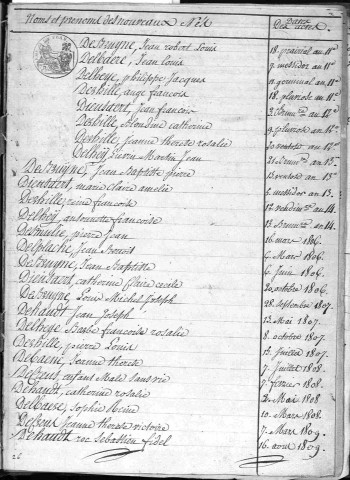 Noms et prénoms des nouveaux Nés Dates Des actes.
DeBrugne, Jean robert Louis 18. prairial an 11e
Delbaere, Jean Louis 9. messidor an 11e
Delheye, philippe Jacques germinal an 12e
Desbille, ange francois 18. pluviose an 12e
Dienstaert, Jean francois an 12e
Desbille, catherine
Desbille, Jeanne therese rosalie
pierre Martin Jean 21. Brumre an 13.
DeBrugne, Jean Baptiste pierre 13. ventose an 13.
Dienstaert, marie Claire amelie 5. messidor an 13.
Desbille, reine francoise 17. vendmre an 14.
antonnette francoise 13. Brumre an 14.
pierre Jean 16. mars 1806.
Delplache, Jean Benoit 6. Mars 1806.
DeBrugne, Jean Baptiste 6. Juin 1806.
Dienstaert, catherine Claire cecile 20. octobre 1806.
DeBrugne, Louis Michel Joseph 28. Septembre 1807.
Dehaudt, Jean Joseph 13. Mai 1807.
Barbe francoise rosalie 8. octobre 1807.
Desbille, pierre Louis 15. Juillet 1807.
DeBaene, Jeanne therese 7. Juillet 1808.
enfant Male sans vie 7. fevrier 1808.
Dehaudt, catherine rosalie 2. Mai 1808.
Delbaere, Sophie Reine 10. Mars 1808.
Jeanne therese victoire 7. Mars 1809.
Dehaudt, roc Sebastien fidel 16. aout 1809.
26